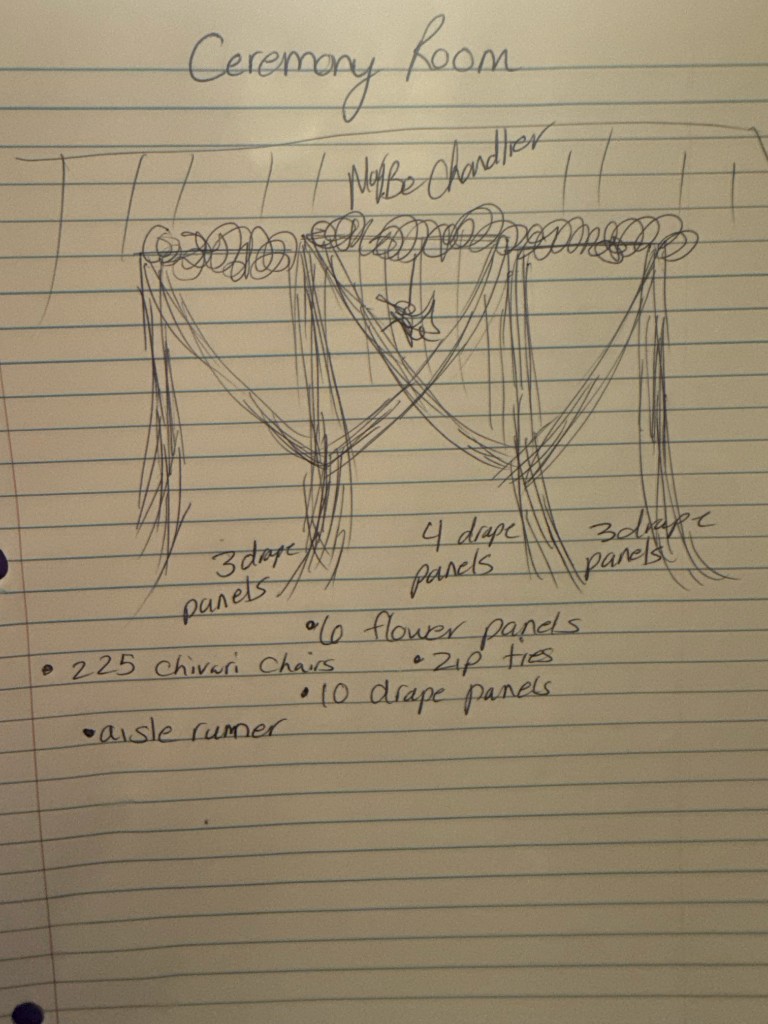 Ceremony Room
MayBe Chandlier
3 drape
panels
4 drape
panels
3 drape
panels
•6 flower panels
• 225 chivari chairs
• zip ties
• 10 drape panels
• aisle runner